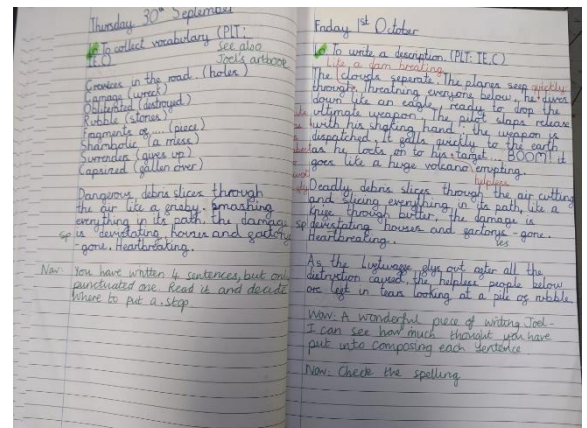 Thursday 30th September
To collect vocabulary (PLT:
IE.C)
See also
Joel's artbook
Crevices in the road. (holes)
Damage (wreck)
Obliterated (destroyed)
Rubble (stones)
Fragments of.... (piece)
Shambolic (a mess)
Surrender (gives up)
Capsized (fallen over)
Dangerous debris slices through
the air like a smashing
everything in its path. the damage
sp is devistating, houses and factorys
-gone. Heartbreaking.
Now: You have written 4 sentences, but only
punctuated one. Read it and decide
where to put a stop
Friday 1st October
To write a description (PLT: IE.C)
Like a dam breaking,
The clouds seperate. The planes seep quickly
through. Threatning everyone below, he dives
down like an eagle, ready to drop the
ultimate weapon. The pilot slaps release
with his shaking hand: the weapon is
dispatched, it falls quickly to the earth
as he locks on to his target... BOOM! it
goes like a huge volcano erupting.
helpless
Deadly debris slices through the air cutting
and slicing everything in its path, like a
knife through butter, the damage is
sp devistating houses and factorys - gone.
Heartbreaking.. ies
As the Luftwaffe flys out after all the
distruction caused, the helpless people below
are left in tears looking at a pile of rubble.
Wow: A wonderful piece of writing Joel -
I can see how much thought you have
put into composing each sentence
Now: Check the spelling